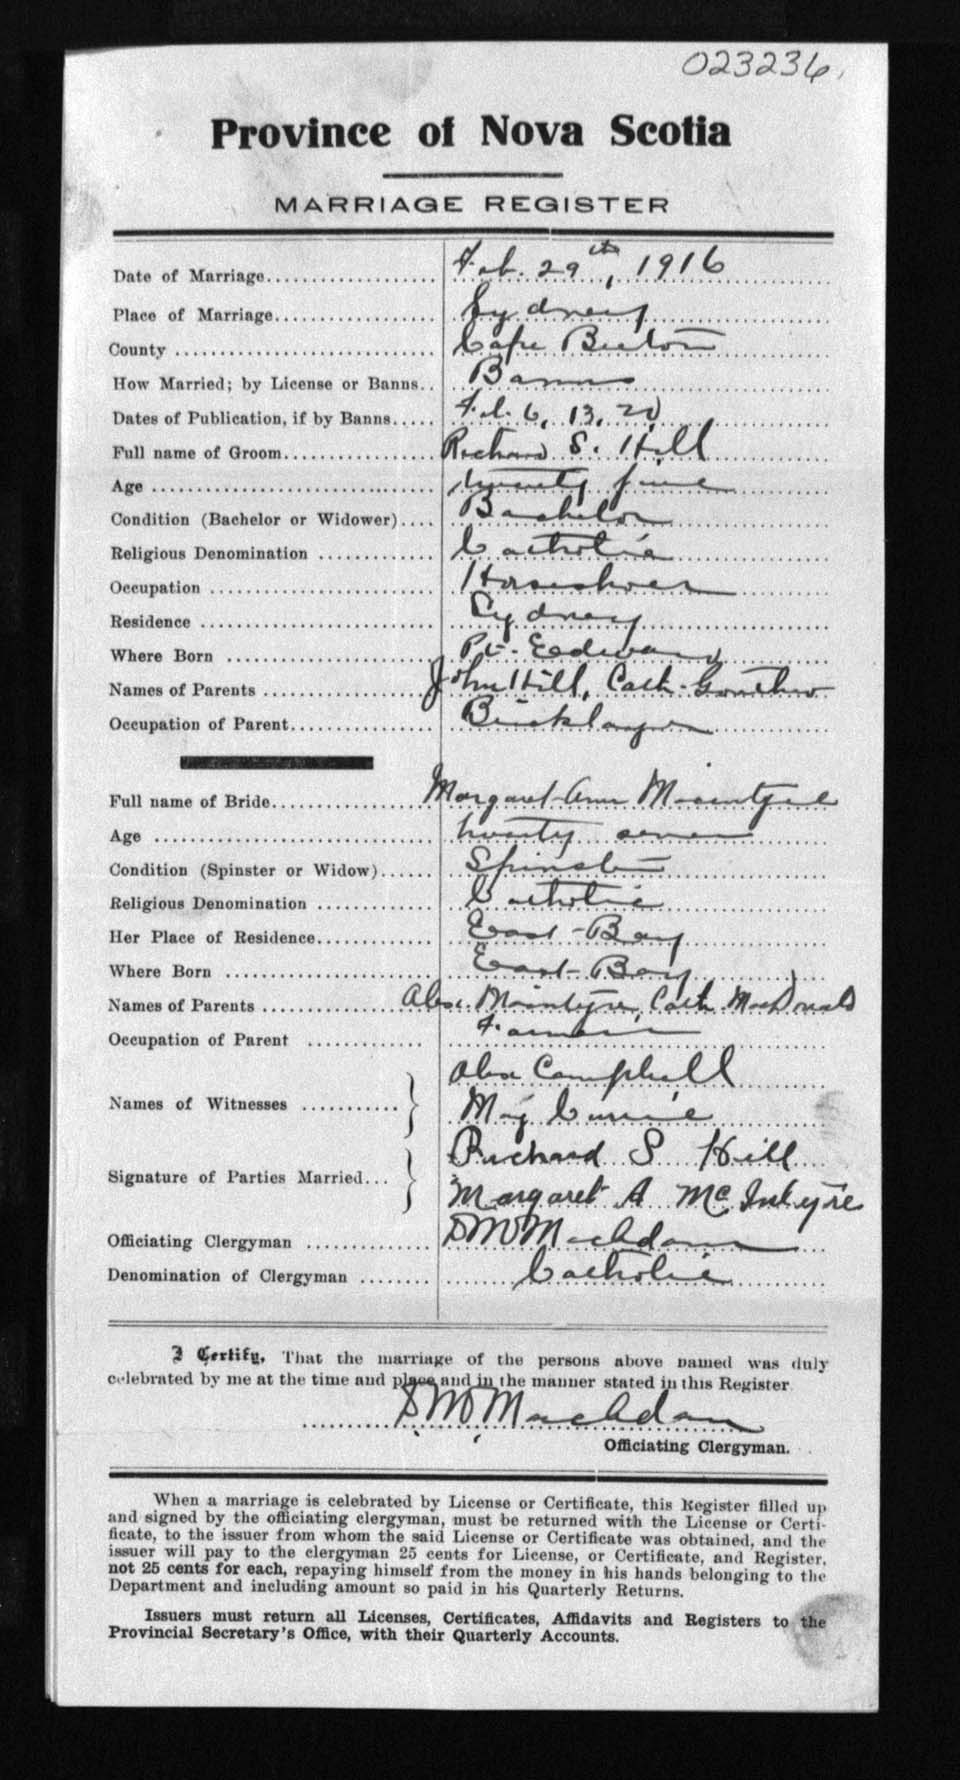 023236
Province of Nova Scotia
MARRIAGE REGISTER
Date of Marriage Feb. 29th, 1916
Place of Marriage Sydney
County Cape Breton
How Married; by License or Banns Banns
Dates of Publication, if by Banns Feb. 6, 13, 20
Full name of Groom Richard S. Hill
Age twenty five
Condition (Bachelor or Widower) Bachelor
Religious Denomination Catholic
Occupation Horseshoer
Residence Sydney
Where Born Pt. Edward
Names of Parents John Hill, Cath.
Occupation of Parent Bricklayer
Full name of Bride Margaret Ann Macintyre
Age twenty seven
Condition (Spinster or Widow) Spinster
Religious Denomination Catholic
Her Place of Residence East-Bay
Where Born East-Bay
Names of Parents Alex. Macintyre, Cath MacDonald
Occupation of Parent Farmer
Alex Campbell
Names of Witnesses
Currie
Richard S Hill
Signature of Parties Married
Margaret A McIntyre
Officiating Clergyman MacAdam
Denomination of Clergyman Catholic
I Certify, That the marriage of the persons above named was duly
celebrated by me at the time and place and in the manner stated in this Register
MacAdam
Officiating Clergyman.
When a marriage is celebrated by License or Certificate, this Register filled up
and signed by the officiating clergyman, must be returned with the License or Certi-
ficate, to the issuer from whom the said License or Certificate was obtained, and the
issuer will pay to the clergyman 25 cents for License, or Certificate, and Register,
not 25 cents for each, repaying himself from the money in his hands belonging to the
Department and including amount so paid in his Quarterly Returns.
Issuers must return all Licenses, Certificates, Affidavits and Registers to the
Provincial Secretary's Office, with their Quarterly Accounts.